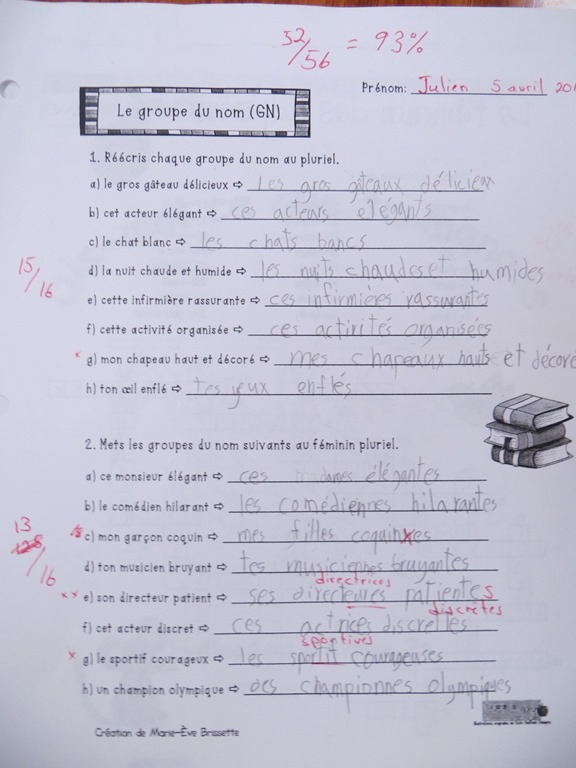 32/56 = 93%
Prénom: Julien 5 avril 201
Le groupe du nom (GN)
1. Réécris chaque groupe du nom au pluriel.
a) le gros gâteau délicieux ⇨ Les gros gâteaux délicieux
b) cet acteur élégant ⇨ ces acteurs élégants
c) le chat blanc ⇨ les chats bancs
15/16
d) la nuit chaude et humide ⇨ les nuits chaudes et humides
e) cette infirmière rassurante ⇨ ces infirmières rassurantes
f) cette activité organisée ⇨ ces activités organisées
x g) mon chapeau haut et décoré ⇨ mes chapeaux hauts et décore
h) ton œil enflé ⇨ tes yeux enflés
2. Mets les groupes du nom suivants au féminin pluriel.
a) ce monsieur élégant ⇨ ces madames élégantes
b) le comédien hilarant ⇨ les comédiennes hilarantes
13/16
c) mon garçon coquin ⇨ mes filles coquinxes
d) ton musicien bruyant ⇨ tes musiciennes bruyantes
directrices
xx e) son directeur patient ⇨ ses directeures patientes
discrètes
f) cet acteur discret ⇨ ces actrices discrettes
sportives
x g) le sportif courageux ⇨ les sportif courageuses
h) un champion olympique ⇨ des championnes olympiques
Création de Marie-Ève Brissette